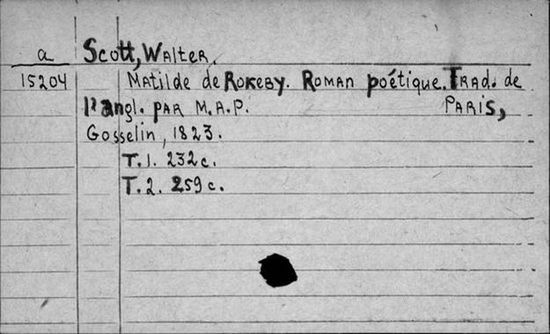 a Scott, Walter.
15204 Matilde de Rokeby. Roman poétique. Trad. de
l'angl. par M.A.P. Paris,
Gosselin, 1823.
T.1. 232c.
T.2. 259c.